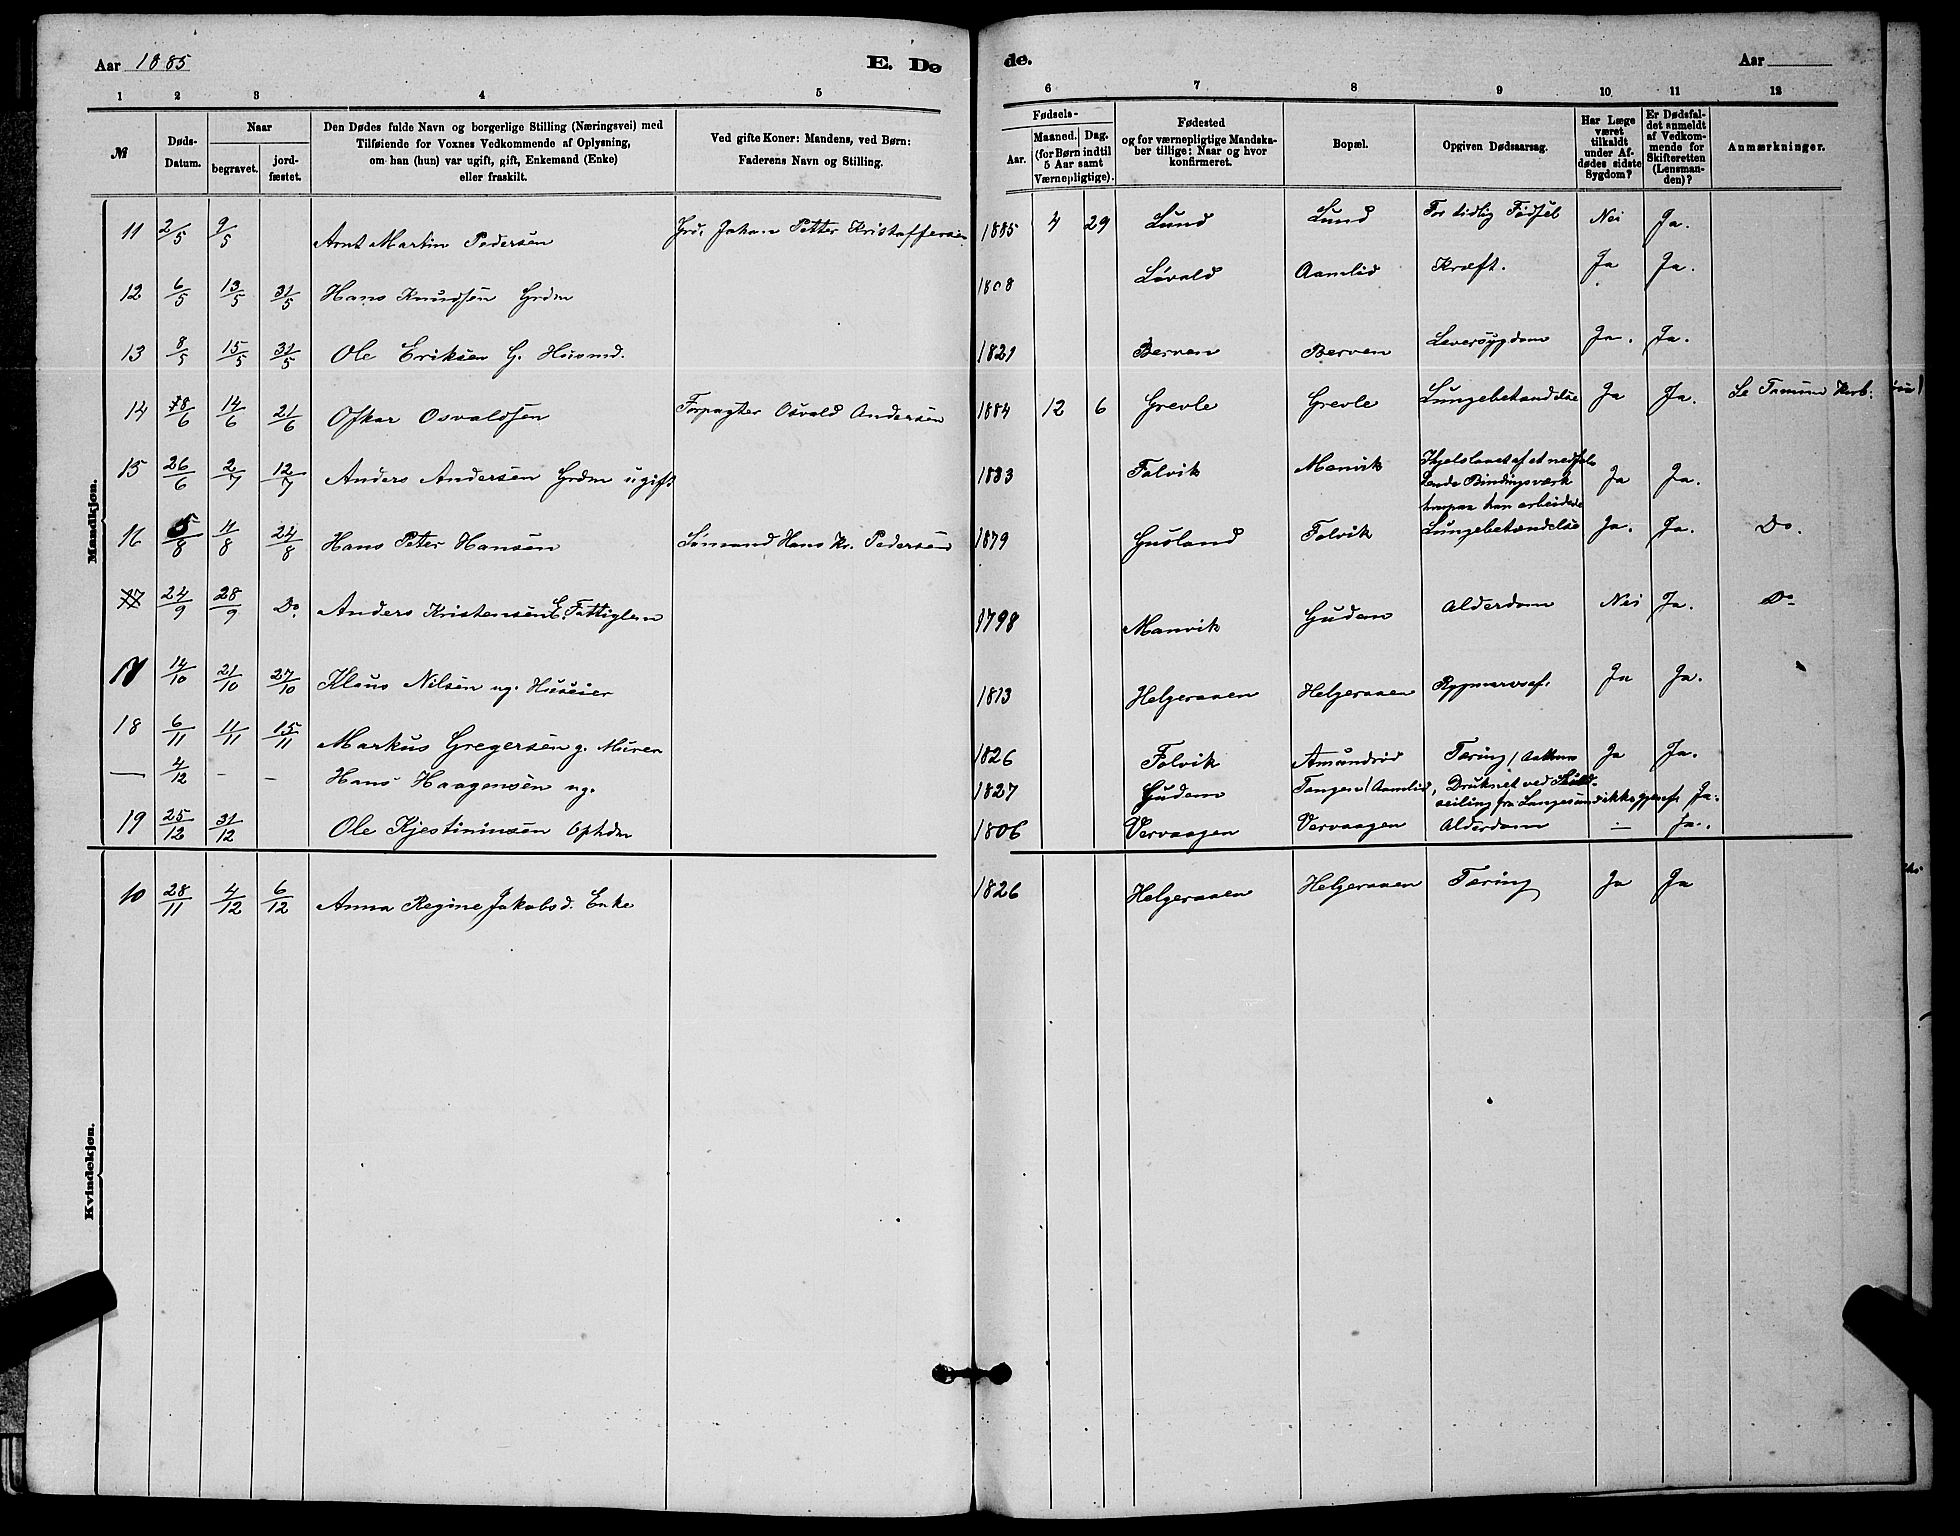 Aar 1885 E. Dø de. Aar
1 2 3 4 5 6 7 8 9 10 11 12
№
Døds-
Datum.
Naar
begravet.
jord-
fæstet.
Den Dødes fulde Navn og borgerlige Stilling (Næringsvei) med
Tilføiende for Voxnes Vedkommende af Oplysning,
om han (hun) var ugift, gift, Enkemand (Enke)
eller fraskilt.
Ved gifte Koner: Mandens, ved Børn:
Faderens Navn og Stilling.
Fødsels-
Aar.
Maaned. Dag.
(for Børn indtil
5 Aar samt
Værnepligtige).
Fødested
og for værnepligtige Mandska-
ber tillige: Naar og hvor
konfirmeret.
Bopæl.
Opgiven Dødsaarsag.
Har Læge
været
tilkaldt
under Af-
dødes sidste
Sygdom?
Er Dødsfal-
det anmeldt
af Vedkom-
mende for
Skifteretten
(Lensman-
den)?
Anmærkninger.
Mandkjøn.
11 2/5 9/5 Arnt Martin Pedersen Grdr. Johan Petter Kristoffersen 1885 4 29 Lund Lund For tidlig Fødsel Nei Ja.
12 6/5 13/5 31/5 Hans Knudsen Grdm 1808 Løvald Aamlid Kræft. Ja Ja.
13 8/5 15/5 31/5 Ole Eriksen G. Husmd. 1821 Berven Berven Leversygdom Ja. Ja.
14 8/6 14/6 21/6 Oskar Osvaldsen Forpagter Osvald Andersen 1884 12 6 Grevle Grevle Lungebetændelse Ja Ja.
15 26/6 2/7 12/7 Anders Andersen Grdm ugift 1883 Folvik Manvik Ihjelslaaet af et nedfal-
lende Bindingsværk
hvorpaa han arbeidede Ja Ja.
16 5/8 11/8 24/8 Hans Peter Hansen Sømand Hans Kr. Pedersen 1879 Gusland Folvik Lungebetændelse Ja. Ja. Do.
17 24/9 28/9 Do. Anders Kristensen E. Fattiglem 1798 Manvik Gudem Alderdom Nei Ja. Do
17 14/10 21/10 27/10 Klaus Nilsen ug. Huseier 1813 Helgeraaen Helgeraaen Rygmarvsaf. Ja Ja.
18 6/11 11/11 15/11 Markus Gregersen g. Murer 1826 Folvik Amundrød Tæring Ja Ja.
— 4/12 - - Hans Haagensen ug. 1827 Gudem Tangen/Aamlid, Druknet ved
seiling fra Langesund Ja.
19 25/12 31/12 Ole Kjestininsen 1806 Vervaagen Vervaagen Alderdom — Ja.
Kvindekjøn.
10 28/11 4/12 6/12 Anna Regine Jakobsd. Enke 1826 Helgeraaen Helgeraaen Tæring Ja Ja